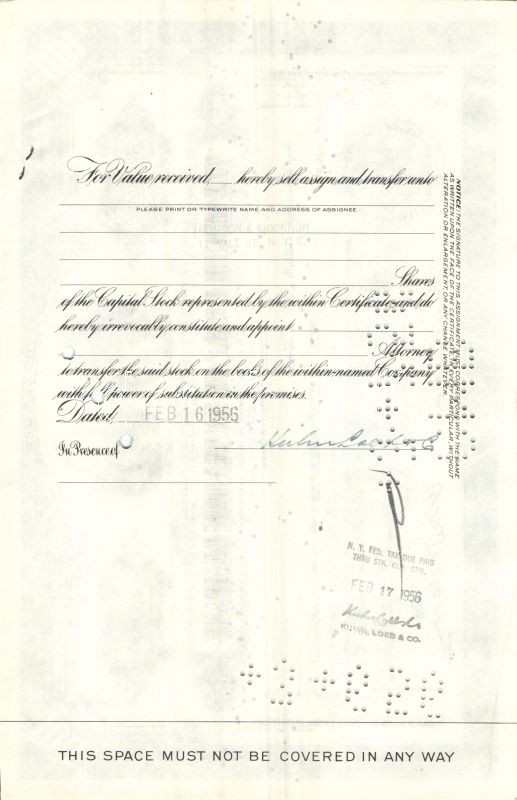 For Value received, ___ hereby sell, assign and transfer unto
PLEASE PRINT OR TYPEWRITE NAME AND ADDRESS OF ASSIGNEE
Shares
of the Capital Stock represented by the within Certificate and do
hereby irrevocably constitute and appoint
Attorney
to transfer the said stock on the books of the within-named Company
with full power of substitution in the premises.
Dated, FEB 16 1956
In Presence of
Kuhn Loeb & Co
NOTICE: THE SIGNATURE TO THIS ASSIGNMENT MUST CORRESPOND WITH THE NAME
AS WRITTEN UPON THE FACE OF THE CERTIFICATE IN EVERY PARTICULAR, WITHOUT
ALTERATION OR ENLARGEMENT, OR ANY CHANGE WHATEVER.
N. Y. FED. TAX DUE PAID
THRU STK. CLR. CPN.
FEB 17 1956
KUHN, LOEB & CO.
THIS SPACE MUST NOT BE COVERED IN ANY WAY